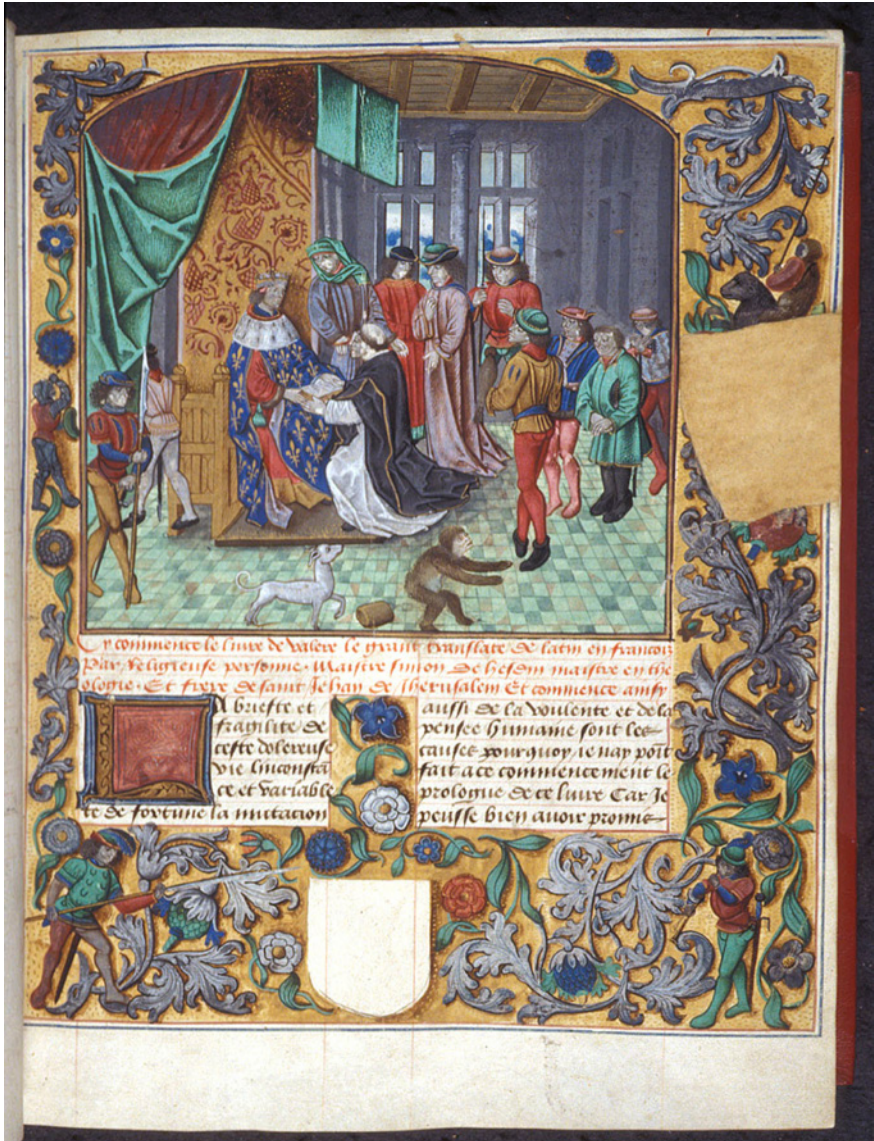 Cy commence le liure de valere le grant translate de latin en francois
Par Religieuse personne. Maistre simon de hesdin maistre en the
ologie. Et frere de saint Jehan de Jherusalem Et commence ainsy
LA briefte et
fragilite de
ceste dolereuse
vie linconsta
ce et variable
te de fortune la mutacion
aussi de la voulente et de la
pensee humaine sont les
causes pourquoy ie nay point
fait a ce commencement le
prologue de ce liure Car Je
peusse bien auoir promis